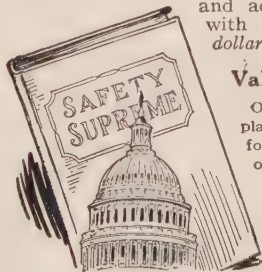 and ac
with
dollar
Val
O
pla
fo
o
SAFETY
SUPREME